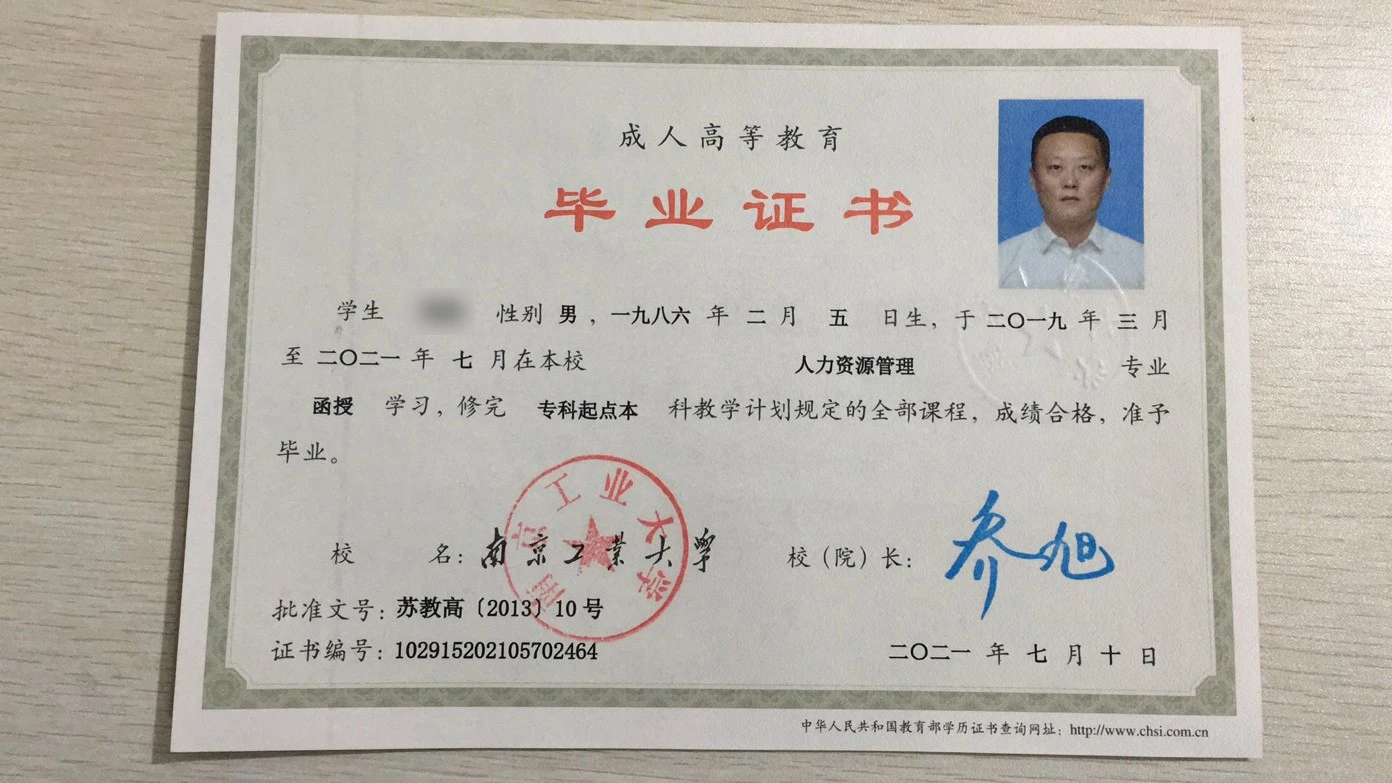 成人高等教育
毕业证书
学生 性别 男，一九八六 年 二 月 五 日生，于 二〇一九 年 三 月
至 二〇二一 年 七 月在本校 人力资源管理 专业
函授 学习，修完 专科起点本 科教学计划规定的全部课程，成绩合格，准予
毕业。
南京工业大学
校 名：南京工業大學 校（院）长：乔旭
批准文号：苏教高〔2013〕10 号
证书编号：102915202105702464 二〇二一 年 七 月 十 日
中华人民共和国教育部学历证书查询网址：http://www.chsi.com.cn